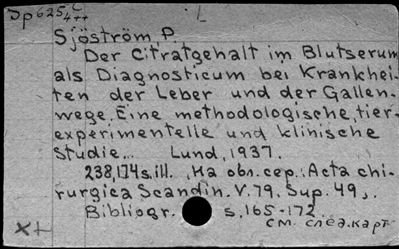 Sp625/4++ L
Sjöström P.
Der Citratgehalt im Blutserum
als Diagnosticum bei Krankhei-
ten der Leber und der Gallen-
wege. Eine methodologische, tier-
experimentelle und klinische
Studie... Lund, 1937.
238,174s. ill. На обл. сер.: Acta chi-
rurgica Scandin. V. 79. Sup. 49,.
Bibliogr. s. 165-172.
см. след. карт